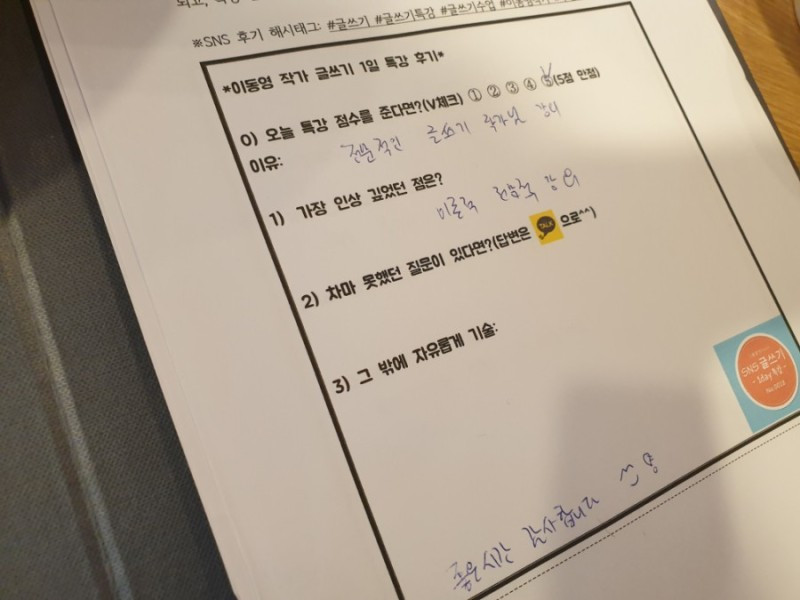 ※SNS 후기 해시태그: #글쓰기 #글쓰기특강 #글쓰기수업
*이동영 작가 글쓰기 1일 특강 후기*
0) 오늘 특강 점수를 준다면?(V체크) ① ② ③ ④ ⑤(5점 만점)
이유: 전문적인 글쓰기 작가님 강의
1) 가장 인상 깊었던 점은?
이론적 강의
2) 차마 못했던 질문이 있다면?(답변은 TALK 으로^^)
3) 그 밖에 자유롭게 기술:
SNS 글쓰기
- 1day 특강 -
좋은시간 감사합니다